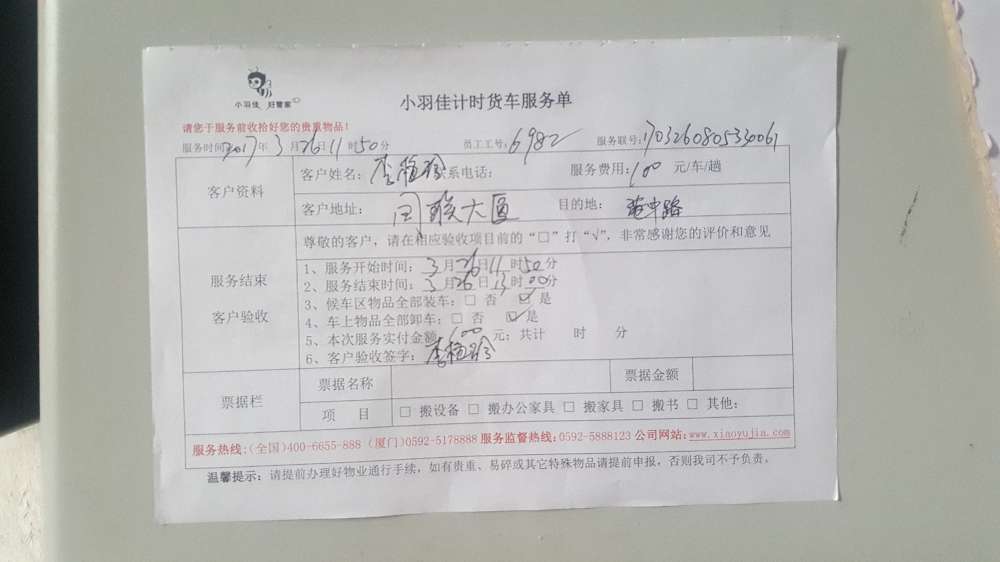 小羽佳 好管家
小羽佳计时货车服务单
请您于服务前收拾好您的贵重物品!
服务时间:2017年 3月26日11时50分 员工工号:6982 服务联号:1703260805330061
客户资料
客户姓名:李 联系电话: 服务费用:100 元/车/趟
客户地址: 国联大厦 目的地: 中路
服务结束
客户验收
尊敬的客户,请在相应验收项目前的“□”打“√”,非常感谢您的评价和意见
1、服务开始时间:3月26日11时50分
2、服务结束时间:3月26日13时00分
3、候车区物品全部装车:□ 否 ☑ 是
4、车上物品全部卸车:□ 否 ☑ 是
5、本次服务实付金额 100 元;共计 时 分
6、客户验收签字:李
票据栏
票据名称 票据金额
项 目 □ 搬设备 □ 搬办公家具 □ 搬家具 □ 搬书 □ 其他:
服务热线:(全国)400-6055-888 (厦门)0592-5178888 服务监督热线:0592-5888123 公司网站:www.xiaoyujia.com
温馨提示:请提前办理好物业通行手续,如有贵重、易碎或其它特殊物品请提前申报,否则我司不予负责。